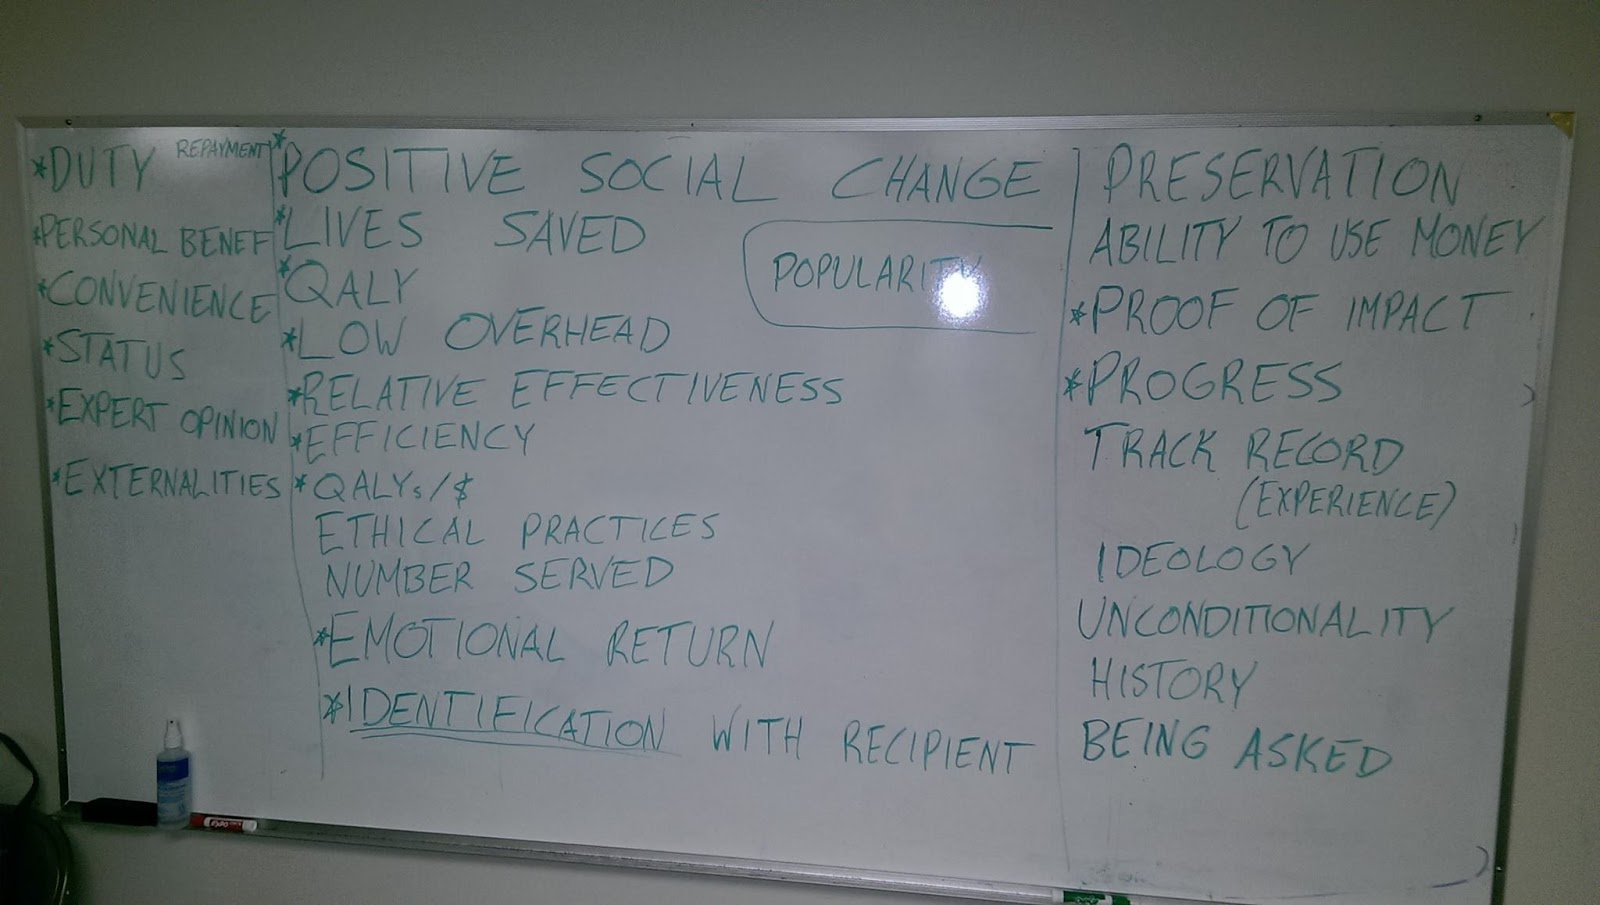 *DUTY REPAYMENT
*PERSONAL BENEF
*CONVENIENCE
*STATUS
*EXPERT OPINION
*EXTERNALITIES
*POSITIVE SOCIAL CHANGE
*LIVES SAVED
*QALY
*LOW OVERHEAD
*RELATIVE EFFECTIVENESS
*EFFICIENCY
*QALYs/$
ETHICAL PRACTICES
NUMBER SERVED
*EMOTIONAL RETURN
*IDENTIFICATION WITH RECIPIENT
POPULARITY
PRESERVATION
ABILITY TO USE MONEY
*PROOF OF IMPACT
*PROGRESS
TRACK RECORD
(EXPERIENCE)
IDEOLOGY
UNCONDITIONALITY
HISTORY
BEING ASKED